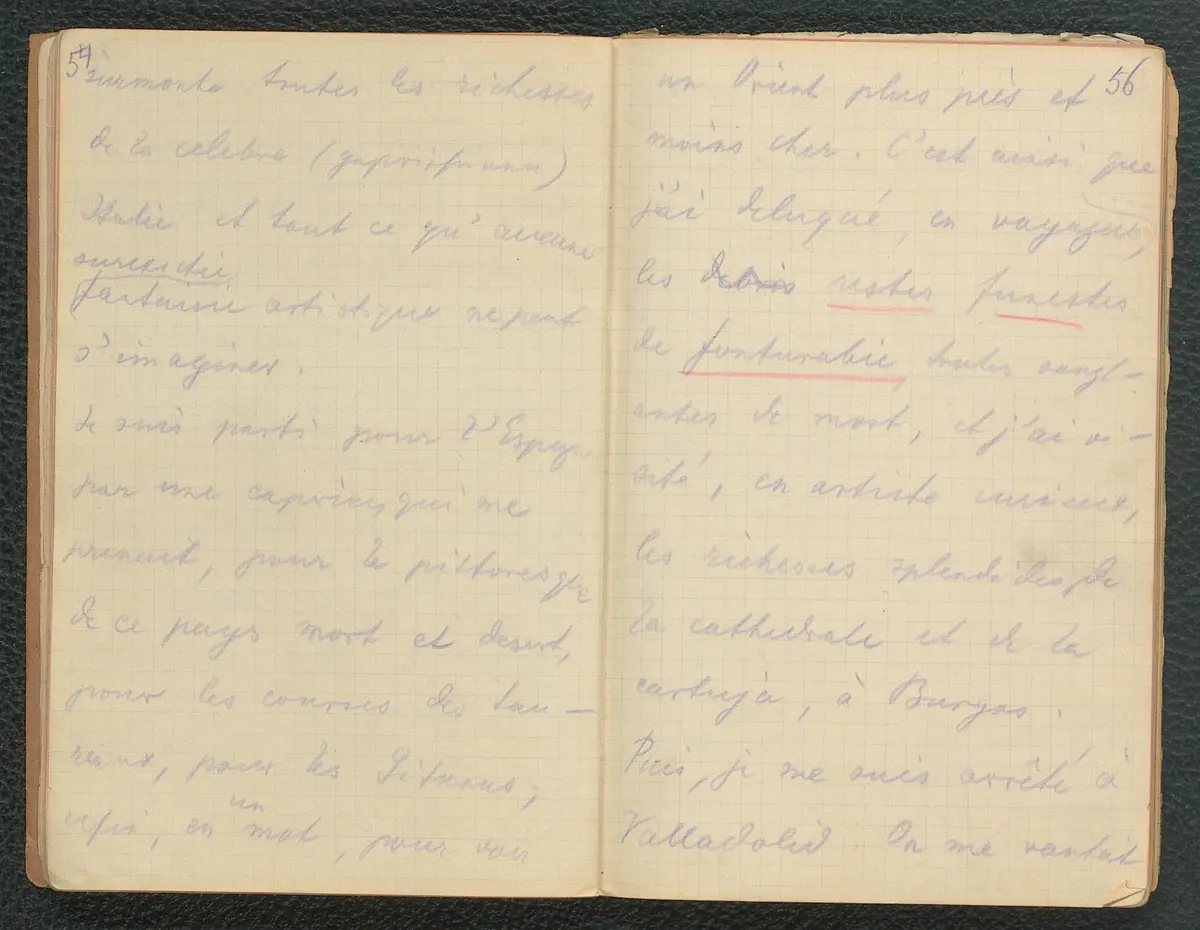 54
surmonte toutes les richesses
de la celebre
Italie et tout ce qu'aucune
surexitée
fantaisie artistique ne peut
s'imaginer.
Je suis parti pour l'Espagne
par une caprice, qui me
prenait, pour le pittoresque
de ce pays mort et desert,
pour les courses des tau-
reaux, pour les Gitanos;
enfin, en un mot, pour voir
56
un Orient plus près et
moins cher. C'est ainsi que
j'ai en voyageur,
les debris restes funestes
de fontarabie, toutes sangl-
antes de mort, et j'ai vi-
sité, en artiste curieux,
les richesses splendides de
la cathedrale et de la
cartuja, à Burgos.
Puis, je me suis arrêté à
Valladolid. On me vantait